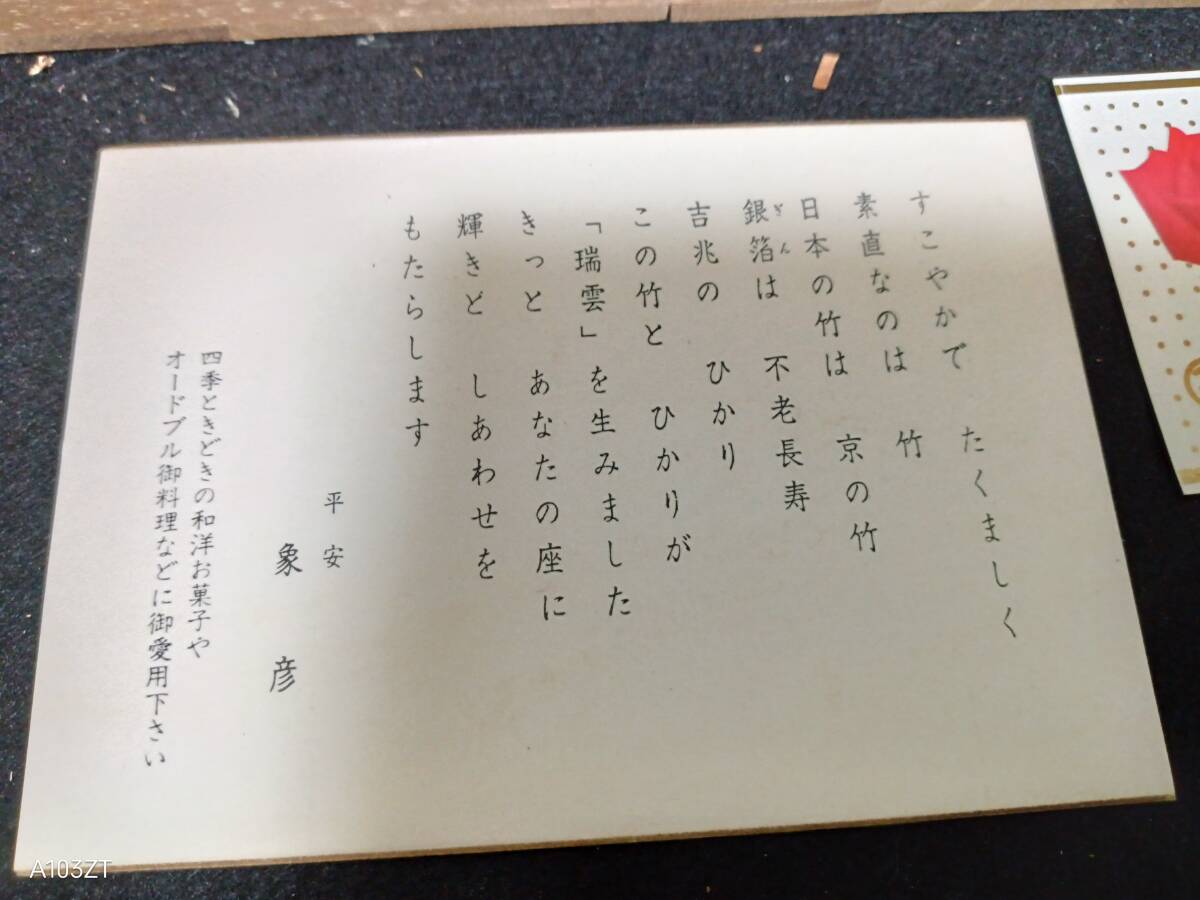 すこやかで　たくましく
素直なのは　竹
日本の竹は　京の竹
銀箔は　不老長寿
ぎん
吉兆の　ひかり
この竹と　ひかりが
「瑞雲」を生みました
きっと　あなたの座に
輝きと　しあわせを
もたらします
平安
象彦
四季ときどきの和洋お菓子や
オードブル御料理などに御愛用下さい
A103ZT